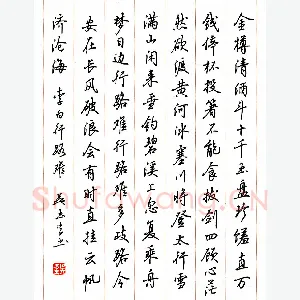 金樽清酒斗十千玉盘珍馐直万
钱停杯投箸不能食拔剑四顾心茫
然欲渡黄河冰塞川将登太行雪
满山闲来垂钓碧溪上忽复乘舟
梦日边行路难行路难多歧路今
安在长风破浪会有时直挂云帆
济沧海 李白行路难
Shufawang.CN